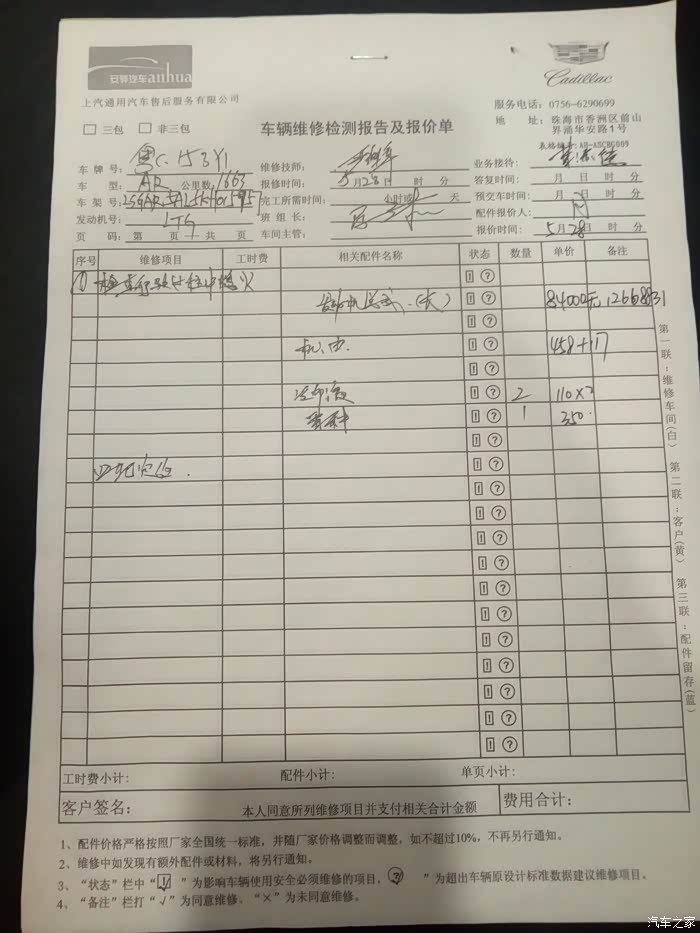 安骅汽车anhua
Cadillac
上汽通用汽车售后服务有限公司
服务电话：0756-6290699
□ 三包 □ 非三包
车辆维修检测报告及报价单
地 址：珠海市香洲区前山
界涌华安路1号
表格编号:AH-ASCBG009
车 牌 号： 维修技师： 业务接待：
车 型：AR 公里数：1663 报修时间：5月28日 时 分 答复时间： 月 日 时 分
车 架 号： 完工所需时间： 小时或 天 预交车时间： 月 日 时 分
发动机号：LTG 班 组 长： 配件报价人：
页 码：第 页 共 页 车间主管： 报价时间：5月28日 时 分
序号 维修项目 工时费 相关配件名称 状态 数量 单价 备注
① 检查行驶过程中熄火
发动机总成.(长) 84000元 12668931
机油. 458+117
冷却液 2 110×2
1 350.
四轮定位.
第一联：维修车间(白) 第二联：客户(黄) 第三联：配件留存(蓝)
工时费小计： 配件小计： 单页小计：
客户签名： 本人同意所列维修项目并支付相关合计金额 费用合计：
1、配件价格严格按照厂家全国统一标准，并随厂家价格调整而调整，如不超过10%，不再另行通知。
2、维修中如发现有额外配件或材料，将另行通知。
3、“状态”栏中“ ”为影响车辆使用安全必须维修的项目， ”为超出车辆原设计标准数据建议维修项目。
4、“备注”栏打“√”为同意维修、“×”为未同意维修。
汽车之家